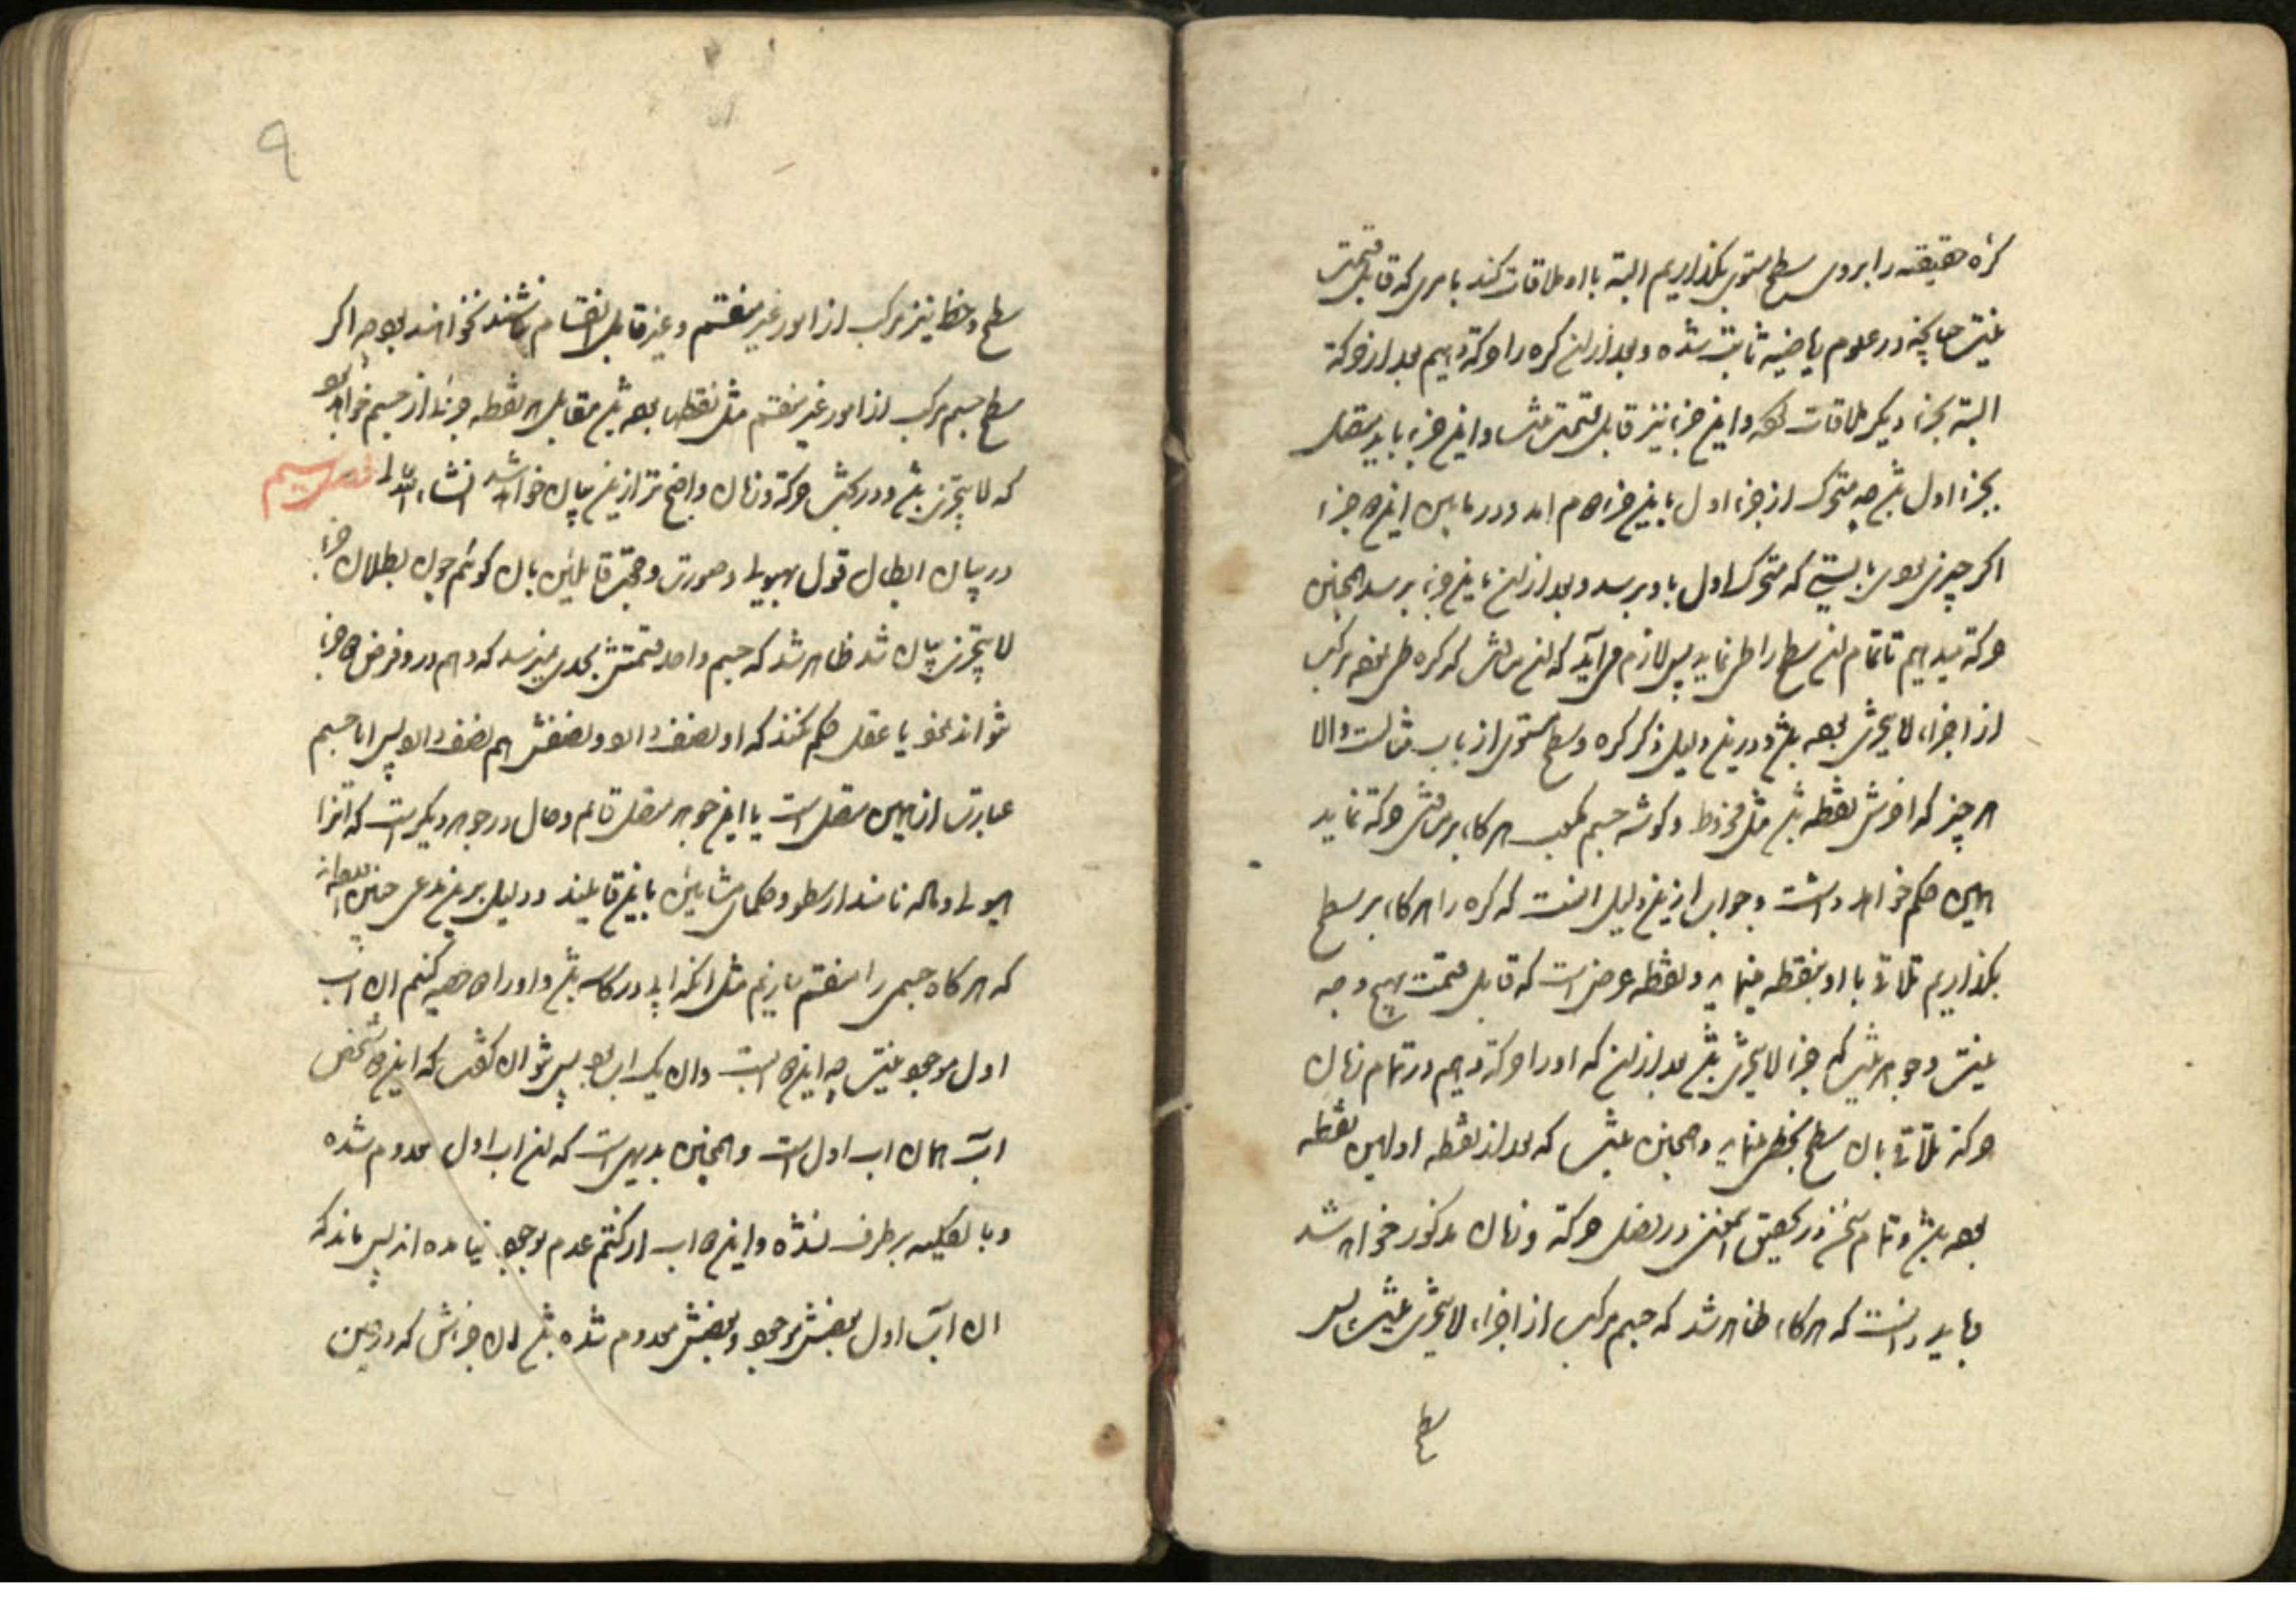 کره حقیقیه را بروی سطح مستوی بگذاریم البته با او ملاقات کند بامری که قابل قسمت
نیست چنانچه در علوم ریاضیه ثابت شده و بعد از ان کره را حرکة دهیم بعد از حرکة
البته بجزء دیگر ملاقات کند و این جزء نیز قابل قسمت نباشد و این جزء باید متصل
بجزء اول باشد چه متحرک از جزء اول باین جزء دوم امد و در مابین این دو جزء
اگر چیزی بودی بایستی که متحرک اول باو برسد و بعد از ان باین جزء برسد همچنین
حرکة میدهیم تا تمام ان سطح را طی نماید پس لازم می آید که ان سطحش که کره طی نموده مرکب
از اجزاء لا یتجزی بوده باشد و درین دلیل ذکر کره و سطح مستوی از باب مثالست والا
هر چیز که اخرش نقطه باشد مثل مخروط و گوشه جسم مکعب هرگاه بر سطحش حرکة نماید
همین حکم خواهد داشت و جواب ازین دلیل انست که کره را هرگاه بر سطح
بگذاریم تلاقی با او بنقطه مینماید و نقطه عرض است که قابل قسمت بهیچ وجه
نیست و جوهر نیست که جزء لا یتجزی باشد بعد از ان که او را حرکة دهیم در تمام زمان
حرکة تلاقی بان سطح بخطی مینماید و همچنین نیست که بعد از نقطه اولین نقطه
بوده باشد و تمام سخن در تحقیق اینمعنی در فصل حرکة و زمان مذکور خواهد شد
بباید دانست که هرگاه ظاهر شد که جسم مرکب از اجزاء لا یتجزی نیست پس
سطح
۹
سطح و خط نیز مرکب از امور غیر منقسم و غیر قابل انقسام نباشند نخواهند بود چه اگر
سطح جسم مرکب از امور غیر منقسم مثل نقطها بوده باشد مقابل هر نقطه جزئی از جسم خواهد بود
که لا یتجزی باشد و در بحث حرکة و زمان واضح تر ازین بیان خواهد شد انشاء الله تعالی فصل سیم
در بیان ابطال قول بهیولی و صورت و حجت قایلین بان گوئیم چون بطلان جزء
لا یتجزی بیان شد ظاهر شد که جسم واحد قسمتش بحدی نمیرسد که وهم در او فرض دو جزء
نتواند نمود یا عقل حکم نکند که او نصف دارد و نصفش هم نصف دارد پس ایا جسم
عبارت از همین متصل است یا این جوهر متصل قایم و حال در جوهر دیگر است که انرا
هیولی و ماده نامند ارسطو و حکمای مشایین باین قایلند و دلیل برین مدعی چنین گفته اند
که هرگاه جسمی را منقسم سازیم مثل انکه ابی در کاسه باشد و او را دو حصه کنیم ان اب
اول موجود نیست چه این دو است و ان یک اب بود پس نتوان گفت که این دو شخص
اب همان اب اول است و همچنین بدیهی است که ان اب اول معدوم شده
و بالکلیه برطرف نشده و این دو اب از کتم عدم بوجود نیامده اند پس ماند که
ان اب اول بعضش موجود و بعضش معدوم شده باشد ان جزءش که در حین